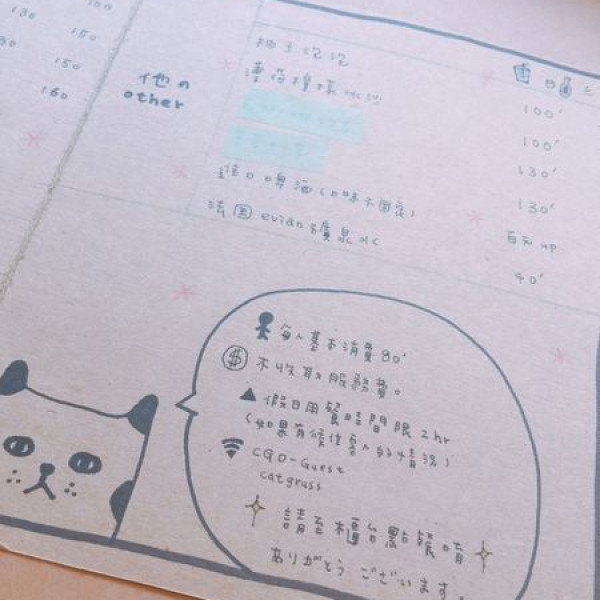 100
130
150
150
160
他の
other
柚子泡泡
100'
薄荷檸檬冰沙
100'
130'
130'
進口啤酒(口味不固定)
百元up
法国 evian 礦泉水
90'
每人基本消費80'
$ 不收取服務費。
假日用餐時間限2hr
(如果有候位客人的情況)
CGO-Guest
catgrass
請至櫃台點餐唷
ありがとう ございます。